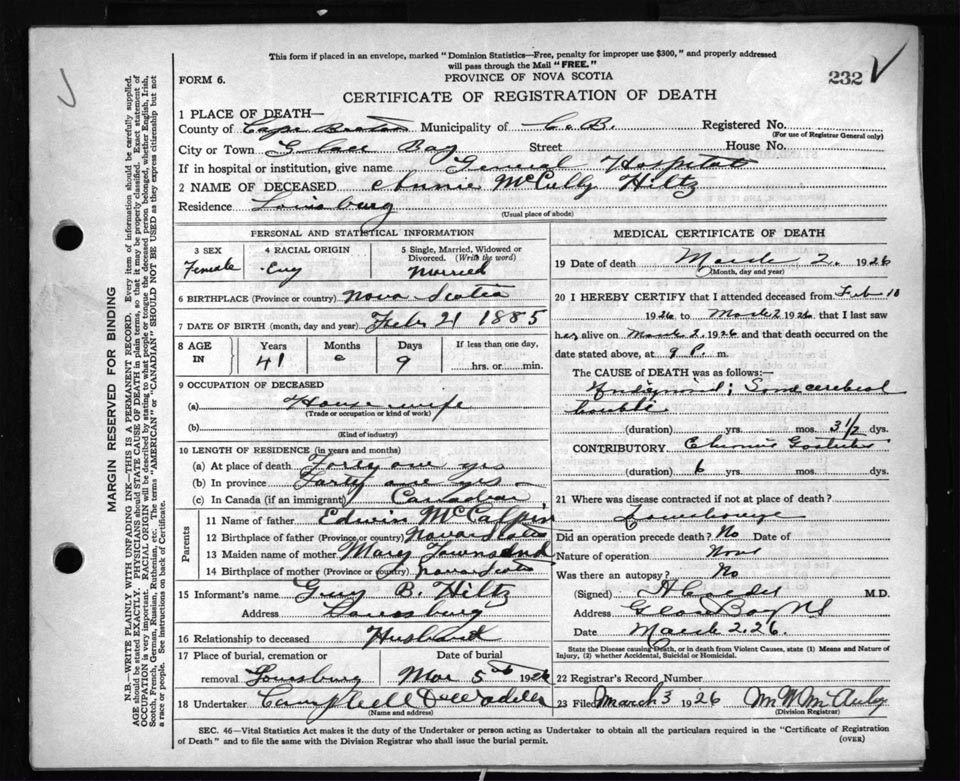 This form if placed in an envelope, marked "Dominion Statistics—Free, penalty for improper use $300," and properly addressed
will pass through the Mail "FREE."
PROVINCE OF NOVA SCOTIA
FORM 6.
232
CERTIFICATE OF REGISTRATION OF DEATH
1 PLACE OF DEATH—
County of Cape Breton Municipality of C. B. Registered No.
(For use of Registrar General only)
City or Town Glace Bay Street House No.
If in hospital or institution, give name General Hospital
2 NAME OF DECEASED Annie McCully Hiltz
Residence Louisburg
(Usual place of abode)
PERSONAL AND STATISTICAL INFORMATION
3 SEX 4 RACIAL ORIGIN 5 Single, Married, Widowed or
Divorced. (Write the word)
Female Eng Married
6 BIRTHPLACE (Province or country) Nova Scotia
7 DATE OF BIRTH (month, day and year) Feb 21 1885
8 AGE IN Years Months Days If less than one day,
41 0 9 hrs. or min.
9 OCCUPATION OF DECEASED
(a) House wife
(Trade or occupation or kind of work)
(b)
(Kind of industry)
10 LENGTH OF RESIDENCE (in years and months)
(a) At place of death Forty one yrs
(b) In province Forty one yrs
(c) In Canada (if an immigrant) Canadian
Parents
11 Name of father Edwin McCalpin
12 Birthplace of father (Province or country) Nova Scotia
13 Maiden name of mother Mary Townsend
14 Birthplace of mother (Province or country) Nova Scotia
15 Informant's name Guy B. Hiltz
Address Louisburg
16 Relationship to deceased Husband
17 Place of burial, cremation or Date of burial
removal Louisburg Mar 5th 1926
18 Undertaker Campbell
(Name and address)
MEDICAL CERTIFICATE OF DEATH
19 Date of death March 2. 1926
(Month, day and year)
20 I HEREBY CERTIFY that I attended deceased from Feb 18
1926 to March 2 1926, that I last saw
her alive on March 2, 1926 and that death occurred on
date stated above, at 9 P. m.
The CAUSE of DEATH was as follows:—
Some cerebral
trouble
(duration) yrs. mos. 3 1/2 dys.
CONTRIBUTORY Chronic
(duration) 6 yrs. mos. dys.
21 Where was disease contracted if not at place of death?
Did an operation precede death? No Date of
Nature of operation None
Was there an autopsy? No
(Signed) M.D.
Address Glace Bay NS
Date March 2, 26.
State the Disease causing Death, or in death from Violent Causes, state (1) Means and Nature of
Injury, (2) whether Accidental, Suicidal or Homicidal.
22 Registrar's Record Number
23 Filed March 3 1926 M W McAulay
(Division Registrar)
SEC. 46—Vital Statistics Act makes it the duty of the Undertaker or person acting as Undertaker to obtain all the particulars required in the "Certificate of Registration
of Death" and to file the same with the Division Registrar who shall issue the burial permit. (OVER)
MARGIN RESERVED FOR BINDING
N.B.—WRITE PLAINLY WITH UNFADING INK—THIS IS A PERMANENT RECORD. Every item of information should be carefully supplied.
AGE should be stated EXACTLY. PHYSICIANS should STATE CAUSE OF DEATH in plain terms, so that it may be properly classified. Exact statement of
OCCUPATION is very important. RACIAL ORIGIN will be described by stating to what people or tongue the deceased person belonged, whether English, Irish,
Scotch, French, German, Russian, Ruthenian, etc. The terms "AMERICAN" or "CANADIAN" SHOULD NOT BE USED as they express citizenship but not
a race or people. See instructions on back of Certificate.